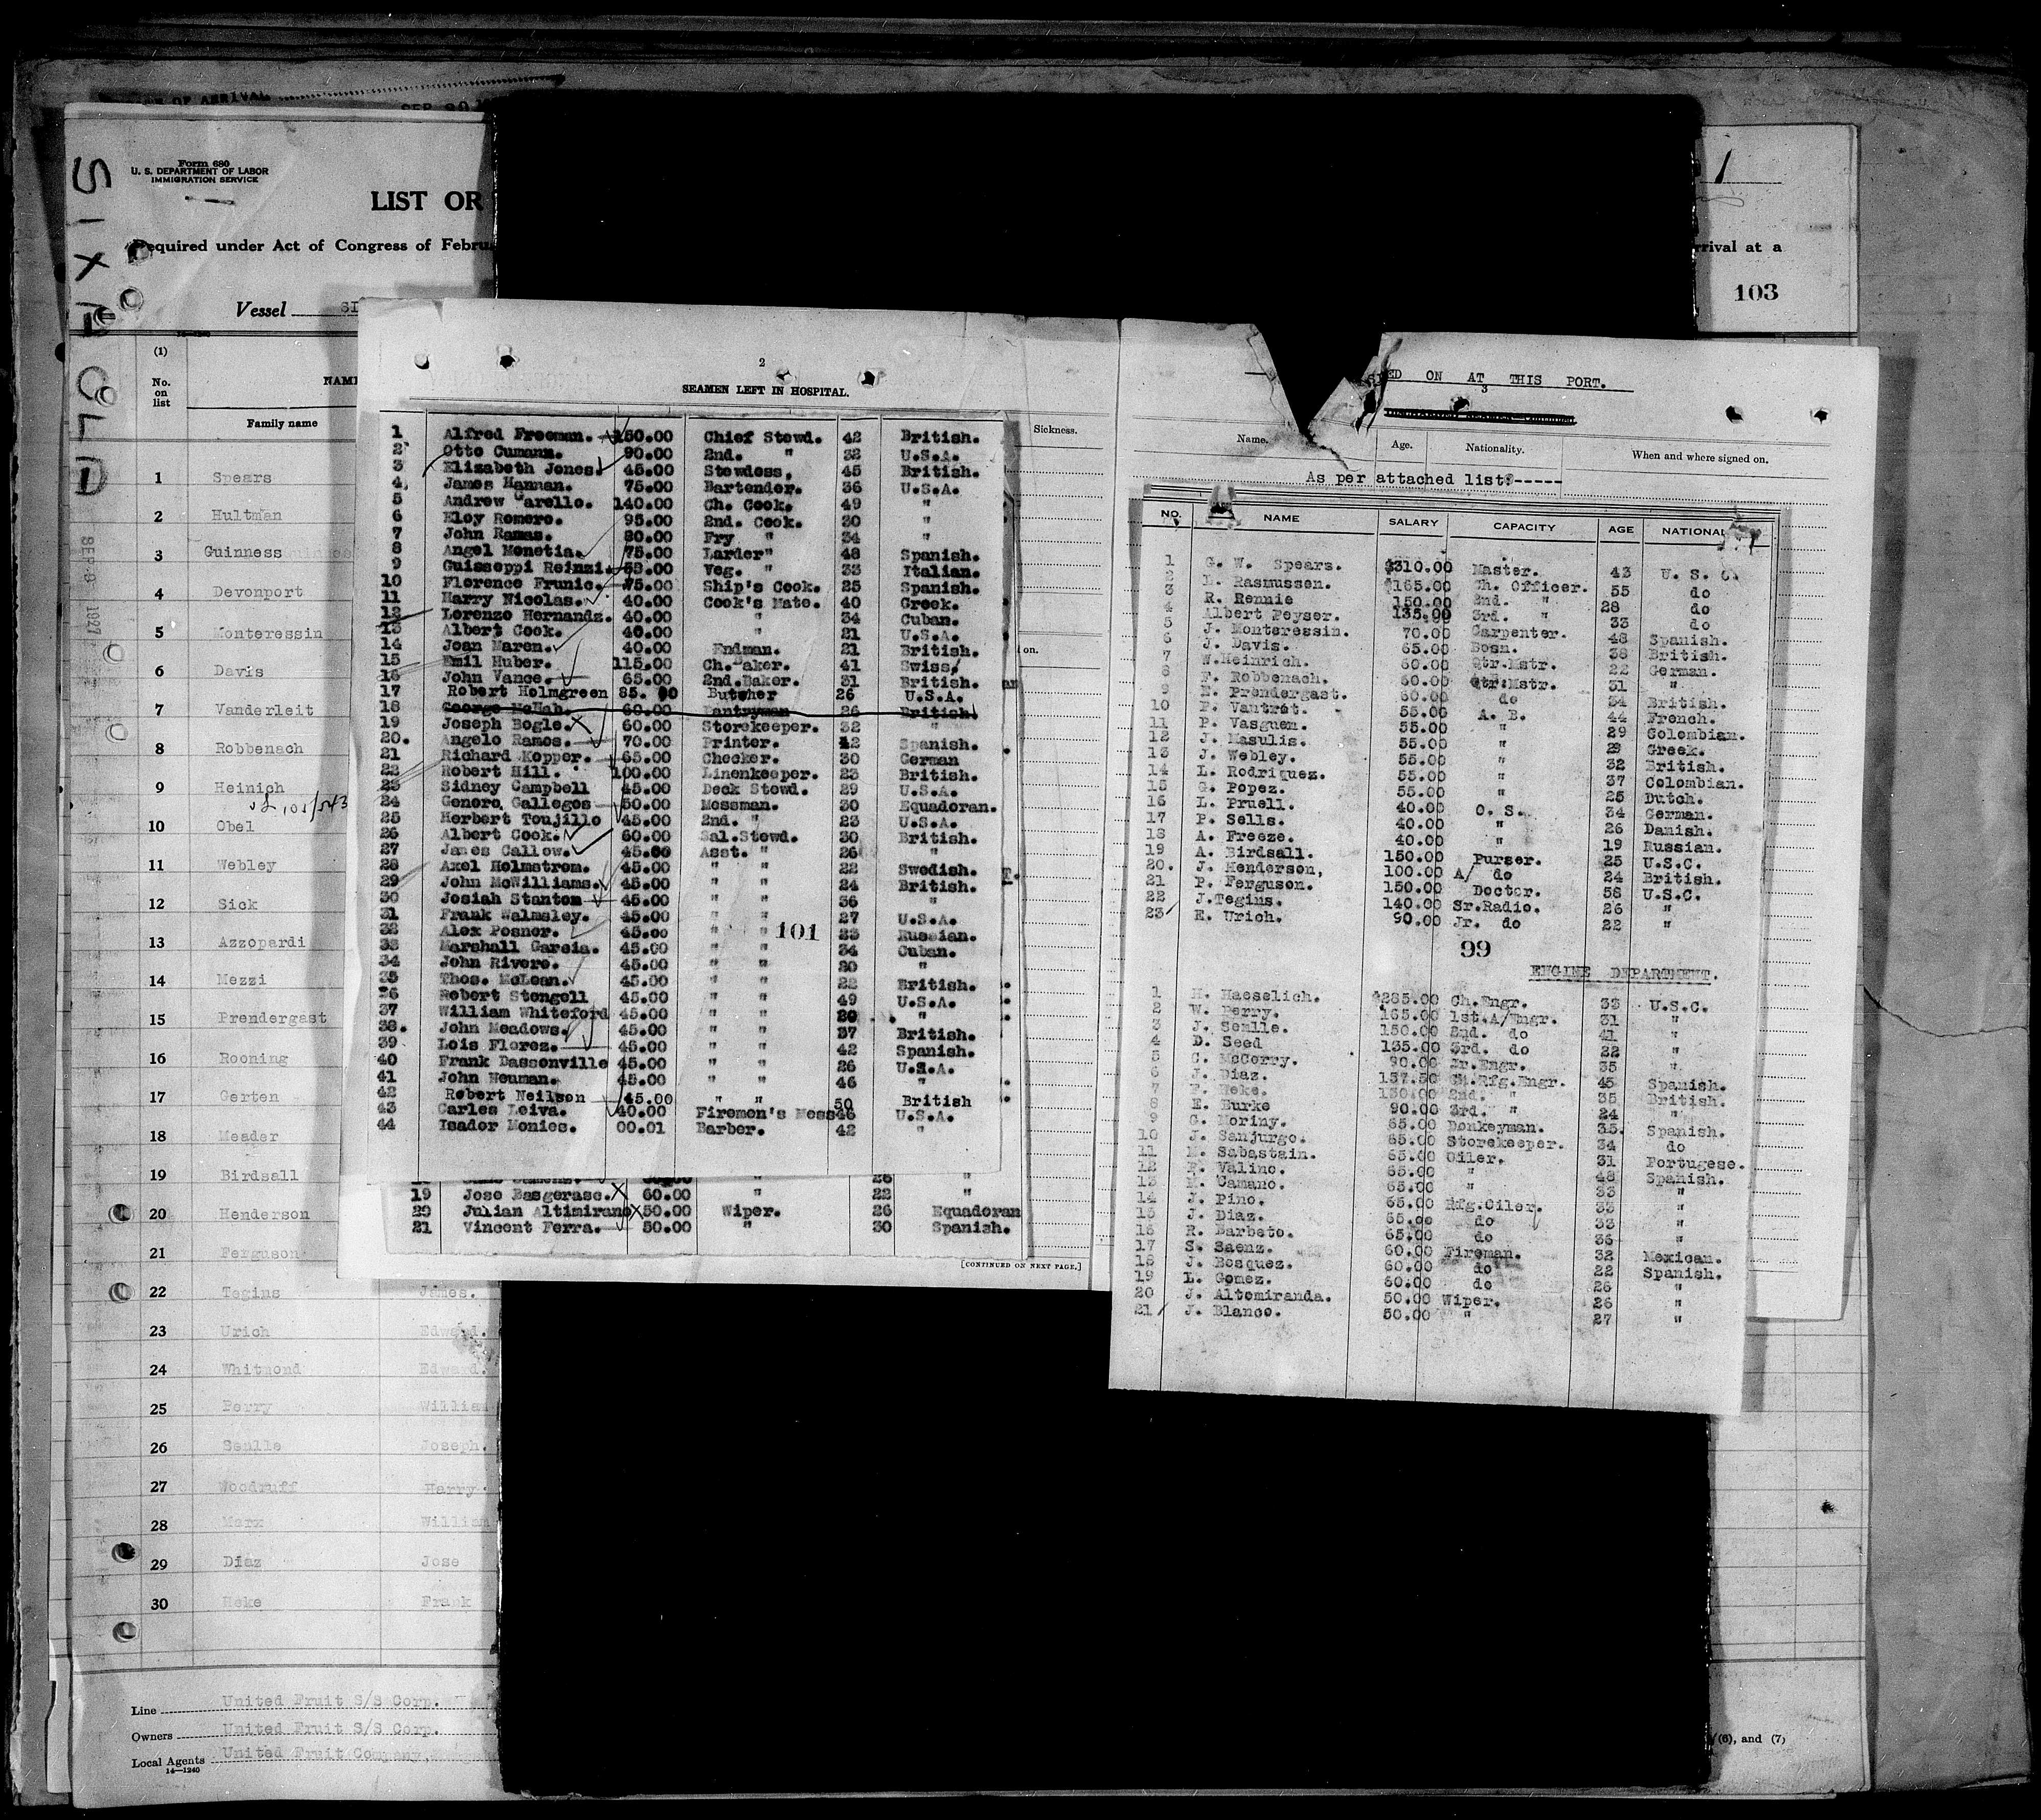 OF ARRIVAL
SIXAOLA
Form 680
U. S. DEPARTMENT OF LABOR
IMMIGRATION SERVICE
LIST OR
Required under Act of Congress of Febru
rrival at a
1
103
Vessel
(1)
No. on list
NAME
Family name
1 Spears
2 Hultman
3 Guinness
4 Devonport
5 Monteressin
6 Davis
7 Vanderleit
8 Robbenach
9 Heinich
10 Obel
11 Webley
12 Sick
13 Azzopardi
14 Mezzi
15 Prendergast
16 Rooning
17 Gerten
18 Meader
19 Birdsall
20 Henderson
21 Ferguson
22 Tegins James.
23 Urich Edward.
24 Whitmond Edward.
25 Perry William
26 Senlle Joseph.
27 Woodruff Harry
28 Marx William
29 Diaz Jose
30 Heke Frank
Line United Fruit S/S Corp.
Owners United Fruit S/S Corp.
Local Agents United Fruit Company,
14—1240
(6), and (7)
2
SEAMEN LEFT IN HOSPITAL.
Sickness.
1 Alfred Freeman. 150.00 Chief Stewd. 42 British.
2 Otto Cumann. 90.00 2nd. " 32 U.S.A.
3 Elizabeth Jones 45.00 Stewdess, 45 British.
4 James Hannan. 75.00 Bartender. 36 U.S.A.
5 Andrew Carello. 140.00 Ch. Cook. 49 "
6 Eloy Romero. 95.00 2nd. Cook. 30 "
7 John Ramas. 80.00 Fry " 34 "
8 Angel Menetia. 75.00 Larder" 48 Spanish.
9 Guisseppi Reinzi. 53.00 Veg. " 33 Italian.
10 Florence Frunic. 75.00 Ship's Cook. 25 Spanish.
11 Harry Nicolas. 40.00 Cook's Mate. 40 Greek.
12 Lorenzo Hernandz. 40.00 " 34 Cuban.
13 Albert Cook. 40.00 " 21 U.S.A.
14 Joan Maren. 40.00 Endman. 21 British.
15 Emil Huber. 115.00 Ch. Baker. 41 Swiss.
16 John Vance. 65.00 2nd.Baker. 31 British.
17 Robert Holmgreen 85.00 Butcher 26 U.S.A.
18 George McNab. 60.00 Pantryman 26 British.
19 Joseph Bogle. 60.00 Storekeeper. 32 "
20. Angelo Ramos. 70.00 Printer. 42 Spanish.
21 Richard Kopper. 65.00 Checker. 30 German
22 Robert Hill. 100.00 Linenkeeper. 23 British.
23 Sidney Campbell 45.00 Deck Stewd. 29 U.S.A.
24 Genero Gallegos 50.00 Messman. 30 Equadoran.
25 Herbert Toujillo 45.00 2nd. " 23 U.S.A.
26 Albert Cook. 60.00 Sal.Stewd. 30 British.
27 James Callow. 45.00 Asst. " 26 "
28 Axel Holmstrom. 45.00 " " 22 Swedish.
29 John McWilliams. 45.00 " " 24 British.
30 Josiah Stanton 45.00 " " 36 "
31 Frank Walmsley. 45.00 " " 27 U.S.A.
32 Alex Posner. 45.00 " " 23 Russian.
101
33 Marshall Garcia. 45.00 " " 34 Cuban.
34 John Rivero. 45.00 " " 20 "
35 Thos. McLean. 45.00 " " 22 British.
36 Robert Stengell 45.00 " " 49 U.S.A.
37 William Whiteford 45.00 " " 20 "
38. John Meadows. 45.00 " " 37 British.
39 Lois Florez. 45.00 " " 42 Spanish.
40 Frank Dassonville 45.00 " " 26 U.S.A.
41 John Neuman. 45.00 " " 46 "
42 Robert Neilson 45.00 " " 50 British
43 Carlos Leiva. 40.00 Firemen's Mess 46 U.S.A.
44 Isador Monies. 00.01 Barber. 42 "
19 Jose Basgerase. 60.00 " 22 "
20 Julian Altimirano 50.00 Wiper. 26 Equadoran
21 Vincent Ferra. 50.00 " 30 Spanish.
[CONTINUED ON NEXT PAGE.]
ED ON AT THIS PORT.
3
Name. Age. Nationality. When and where signed on.
As per attached list:-----
NO. NAME SALARY CAPACITY AGE NATIONAL
1 G. W. Spears. $310.00 Master. 43 U. S. C.
2 L. Rasmussen. $165.00 Ch. Officer. 55 do
3 R. Rennie 150.00 2nd. " 28 do
4 Albert Peyser. 135.00 3rd. " 33 do
5 J. Monteressin. 70.00 Carpenter. 48 Spanish.
6 J. Davis. 65.00 Bosn. 38 British.
7 W.Heinrich. 60.00 Qtr.Mstr. 22 German.
8 F. Robbenach. 60.00 Qtr.Mstr. 31 "
9 E. Prendergast. 60.00 do 34 British.
10 F. Vantrat. 55.00 A. B. 44 French.
11 P. Vasguen. 55.00 " 29 Colombian.
12 J. Masulis. 55.00 " 29 Greek.
13 J. Webley. 55.00 " 32 British.
14 L. Rodriquez. 55.00 " 37 Colombian.
15 G. Popez. 55.00 " 25 Dutch.
16 L. Pruell. 40.00 O. S. 34 German.
17 P. Sells. 40.00 " 26 Danish.
18 A. Freeze. 40.00 " 19 Russian.
19 A. Birdsall. 150.00 Purser. 25 U.S.C.
20. J. Henderson, 100.00 A/ do 24 British.
21 P. Ferguson. 150.00 Doctor. 58 U.S.C.
22 J.Tegins. 140.00 Sr.Radio. 26 "
23 E. Urich. 90.00 Jr. do 22 "
99
ENGINE DEPARTMENT.
1 H. Haeselich. $285.00 Ch.Engr. 33 U.S.C.
2 W. Perry. 165.00 1st.A/Engr. 31 "
3 J. Senlle. 150.00 2nd. do 41 "
4 D. Seed 135.00 3rd. do 22 "
5 C. McCorry. 90.00 Jr.Engr. 35 "
6 J. Diaz. 157.50 Ch.Rfg.Engr. 45 Spanish.
7 F. Heke. 130.00 2nd. " 35 British.
8 E. Burke 90.00 3rd. " 24 "
9 G. Moriny. 65.00 Donkeyman. 35. Spanish.
10 J. Sanjurgo. 65.00 Storekeeper. 34 do
11 L. Sabastain. 65.00 Oiler. 31 Portugese.
12 P. Valino. 65.00 " 48 Spanish.
13 M. Camano. 65.00 " 33 "
14 J. Pino. 65.00 Rfg.Oiler. 33 "
15 J. Diaz. 65.00 do 33 "
16 R. Barbeto. 65.00 do 36 "
17 S. Saenz. 60.00 Fireman. 32 Mexican.
18 J. Bosquez. 60.00 do 22 Spanish.
19 L. Gomez. 60.00 do 26 "
20 J. Altomiranda. 50.00 Wiper. 26 "
21 J. Blanco. 50.00 " 27 "